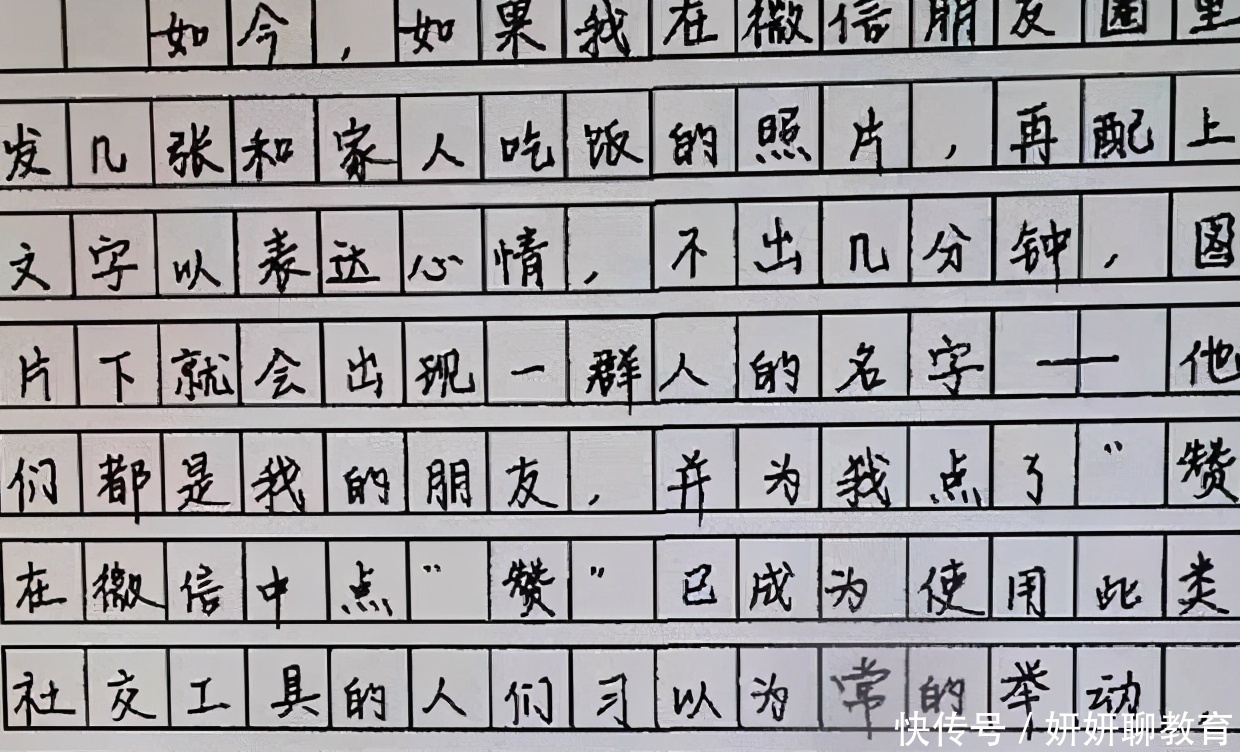 如今,如果我在微信朋友圈里
发几张和家人吃饭的照片,再配上
文字以表达心情,不出几分钟,图
片下就会出现一群人的名字——他
们都是我的朋友,并为我点了“赞
在微信中点“赞”已成为使用此类
社交工具的人们习以为常的举动.
快传号 / 妍妍聊教育